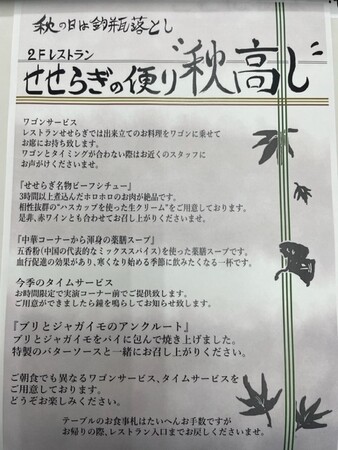 秋の日は釣瓶落とし
2Fレストラン
せせらぎの便り"秋高し"
ワゴンサービス
レストランせせらぎでは出来立てのお料理をワゴンに乗せて
お席にお持ち致します。
ワゴンとタイミングが合わない際はお近くのスタッフに
お声がけくださいませ。
『せせらぎ名物ビーフシチュー』
3時間以上煮込んだホロホロのお肉が絶品です。
相性抜群の"ハスカップを使った生クリーム"をご用意しております。
是非、赤ワインとも合わせてお召し上がりくださいませ。
『中華コーナーから渾身の薬膳スープ』
五香粉(中国の代表的なミックススパイス)を使った薬膳スープです。
血行促進の効果があり、寒くなり始める季節に飲みたくなる一杯です。
今季のタイムサービス
お時間限定で実演コーナー前でご提供致します。
ご用意ができましたら鐘を鳴らしてお知らせ致します。
『ブリとジャガイモのアンクルート』
ブリとジャガイモをパイに包んで焼き上げました。
特製のバターソースと一緒にお召し上がりくださいませ。
ご朝食でも異なるワゴンサービス、タイムサービスを
ご用意しております。
どうぞお楽しみください。
テーブルのお食事札はたいへんお手数ですが
お帰りの際、レストラン入口までお戻しくださいませ。